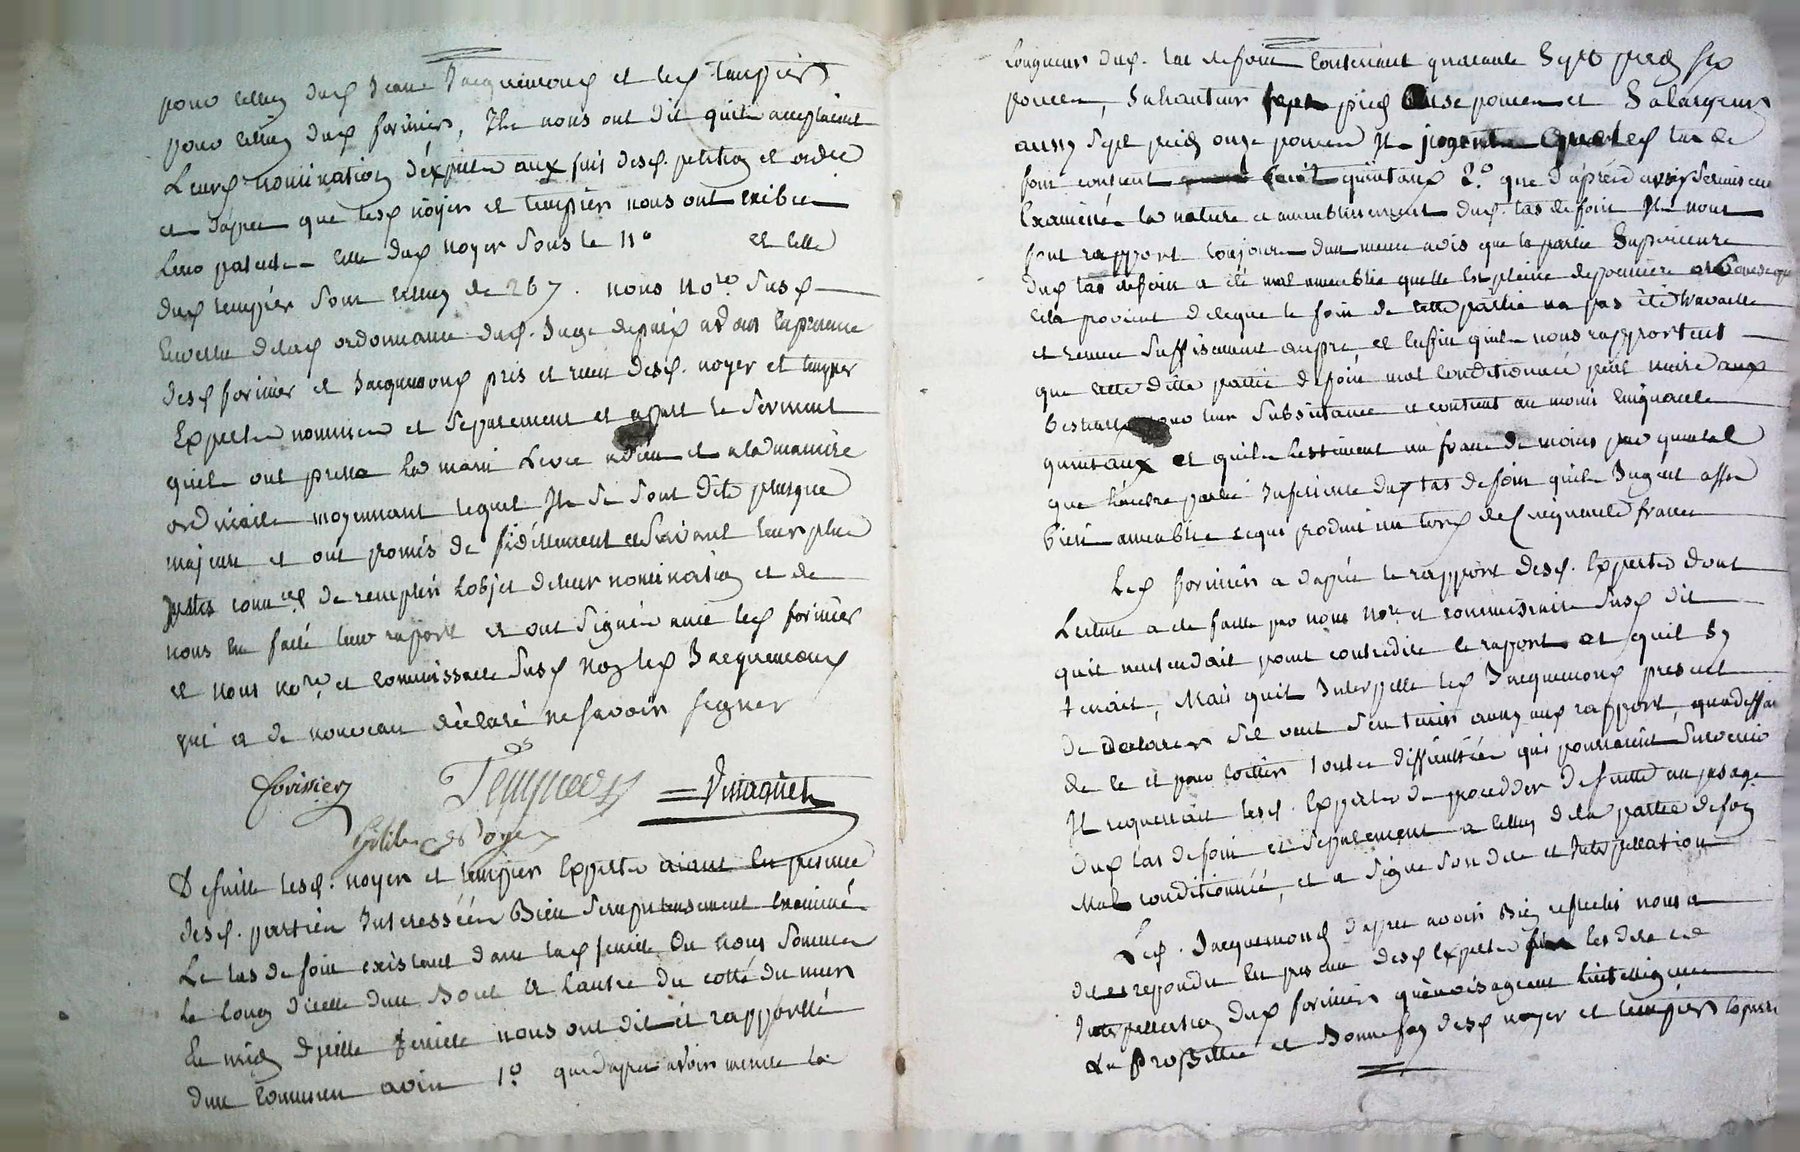 pour celluy dud Jeane Jacquemoud et led tempier
pour celluy dud forinier, Ils nous ont dit quils acceptaient
Leurs nomination d'experts aux fins desd. petition et ordce
et d'apres que lesd noyer et tempier nous ont exibée
Leur patente celle dud noyer sous le n° et celle
dud tempier sous celluy de 267. nous No.re susd
en vertu de lad ordonnance dud. Juge de paix avons en presence
desd forinier et Jacquemoud pris et recu desd. noyer et tempier
Experts nommés et separement et apart le serment
quils ont preté la main Levée a dieu et a la maniere
ordinaire moyennant lequel Ils se sont dits presque
majeurs et ont promis de fidellement et suivant leurs plus
Justes conn.ces de remplir L'objet de leur nomination et de
nous en faire leur raport et ont signés avec led forinier
et nous no.re et commissaire susd non led Jacquemoud
qui a de nouveau déclaré ne savoir signer
forinier Tempier
Noyer
De suitte lesd. noyer et tempier Experts aiant en presence
desd. parties Interessées Bien scrupuleusement examiné
Le tas de foin existant dans lad feniere ou nous sommes
Le long d'icelle d'un Bout a l'autre du cotté du mur
le midy d'icelle feniere nous ont dit et rapporté
d'un commun avis 1.° que d'apres avoir mesuré la
longueur dud. tas de foin contenant quarante sept pieds six
pouces, sa hauteur sept pieds onse pouces et sa largeur
aussy sept pieds onze pouces Ils jugent que led tas de
foin contient quintaux 2.° que d'apres avoir serieusemt
Examiné la nature et ameublissement dud. tas de foin Ils nous
font rapport toujours d'un meme avis que la partie superieure
dud tas de foin a été mal ameublie quelle est pleine de poussiere et
cela provient de ceque le foin de cette partie na pas été travaillé
et remué suffisement au pré, et enfin quils nous rapportent
que cette ditte partie de foin mal conditionnée peut nuire aux
Bestiaux pour leur subsistance et contient au moins cinquante
quintaux et quils l'estiment un franc de moins par quintal
que l'autre partie Inferieure dud tas de foin quils Jugent assés
Bien ameublie ce qui produit un tord de cinquante francs
Led forinier a d'apres le rapport desd. Experts dont
Lecture a été faitte par nous No.re et commissaire susd dit
quil n'entendait point contredire le raport et quil s'y
tenait, Mais quil Interpelle led Jacquemoud present
de declarer s'il veut s'en tenir aussy aud rapport, qu'adeffaut
de ce et pour eviter toutes difficultées qui pourraient survenir
Il requerrait lesd. Experts de proceder de suitte au pesage
dud tas de foin et separement a celluy de la partie de foin
Mal conditionnée, et a signé son dire et Interpellation
Led. Jacquemoud d'apres avoir Bien reflechi nous a
dit et repondu en presence desd Experts sur les dire et
Interpellation dud forinier qu'envisageant l'intelligence
La Probitée et Bonne foy desd noyer et tempier